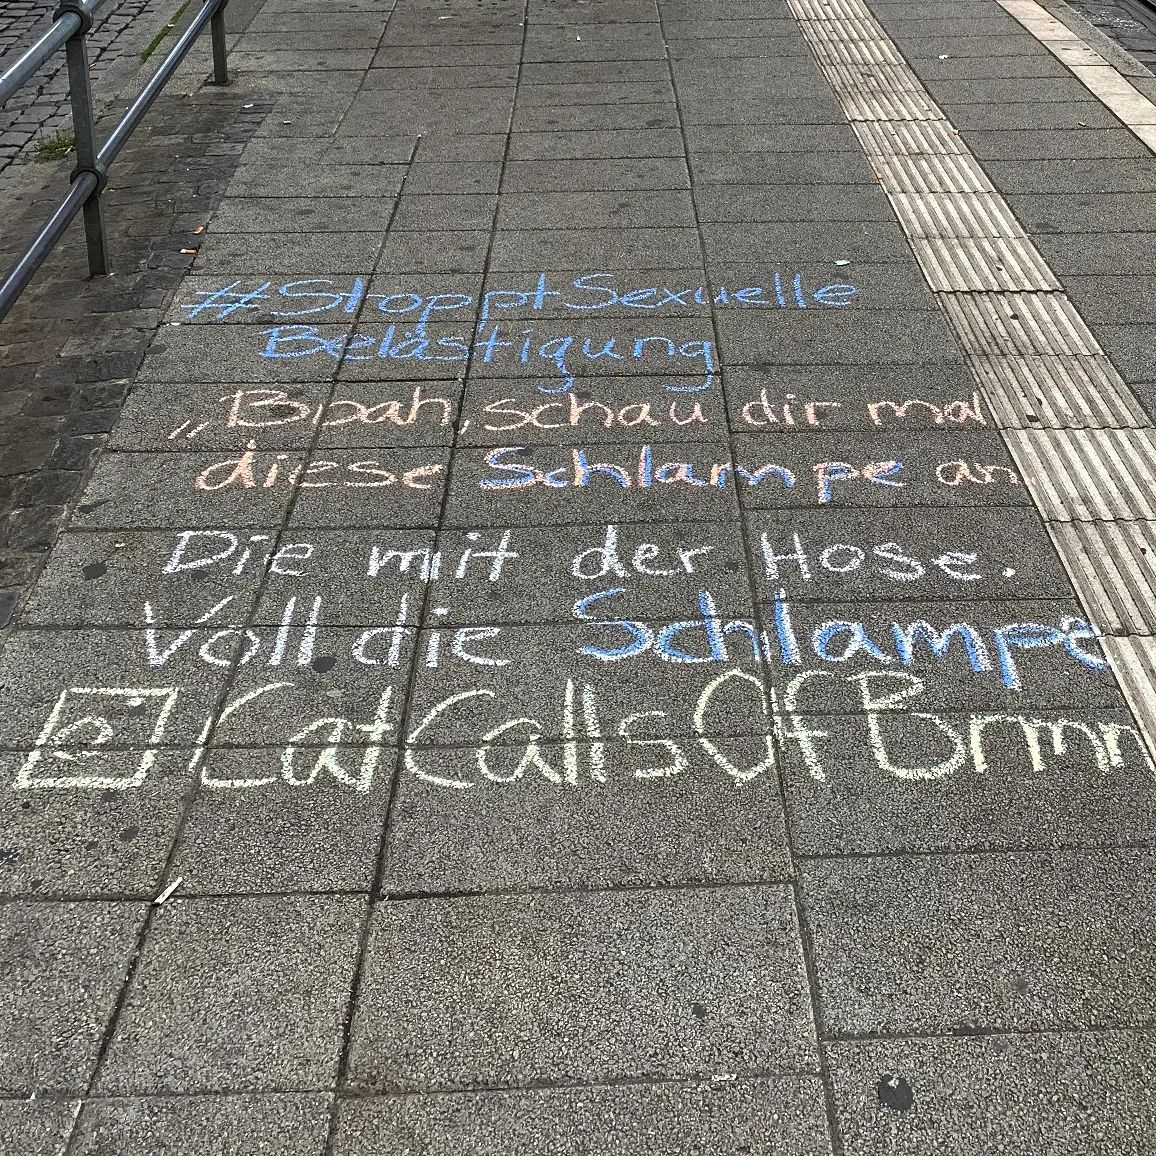 #StopptSexuelle
Belästigung
„Boah, schau dir mal
diese Schlampe an.
Die mit der Hose.
Voll die Schlampe
CatCallsOfBrmn